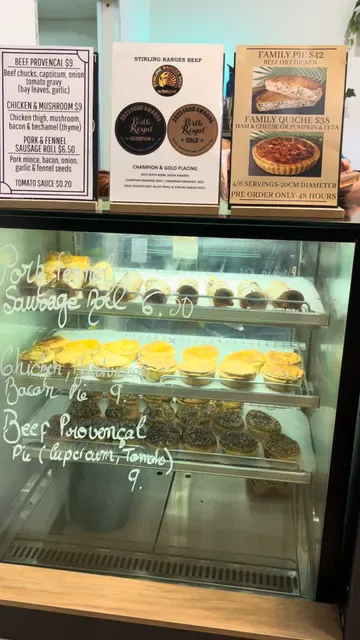 BEEF PROVENCAL $9
Beef chucks, capsicum, onion
tomato gravy
(bay leaves, garlic)
CHICKEN & MUSHROOM $9
Chicken thigh, mushroom,
bacon & bechamel (thyme)
PORK & FENNEL
SAUSAGE ROLL $6.50
Pork mince, bacon, onion,
garlic & fennel seeds
TOMATO SAUCE $0.20
STIRLING RANGES BEEF
2023 FOOD AWARDS
Perth
Royal
CHAMPION
2023 FOOD AWARDS
Perth
Royal
GOLD
CHAMPION & GOLD PLACING
FAMILY PIE $42
BEEF OR CHICKEN
FAMILY QUICHE $38
HAM & CHEESE OR PUMPKIN & FETA
4/6 SERVINGS-20CM DIAMETER
PRE ORDER ONLY-48 HOURS
Pork fennel
Sausage Roll 6.50
Chicken
Bacon Pie 9.
Beef Provençal
Pie (Cupcicum, Tomato)
9.